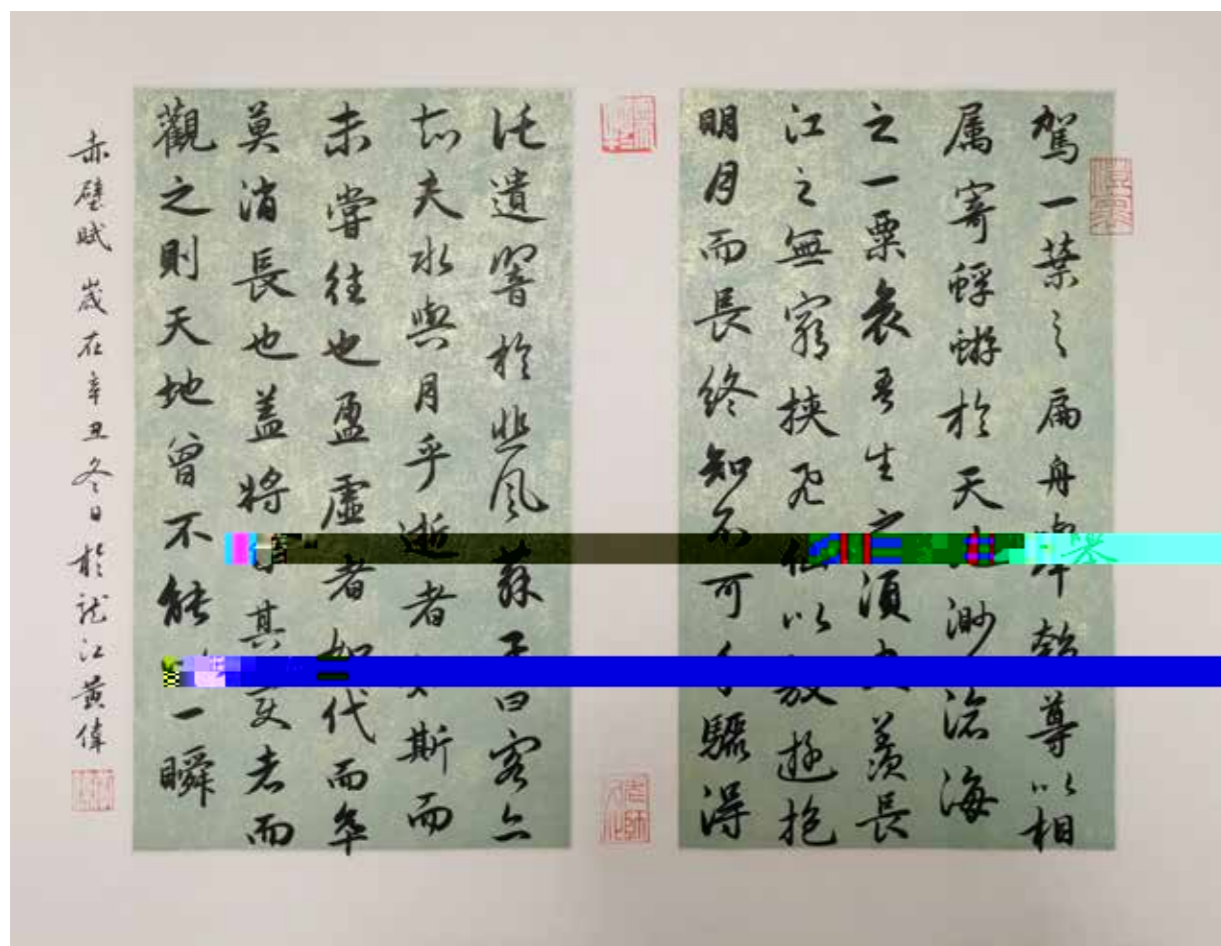 駕一葉之扁舟尊以相
属寄蜉蝣於天渺滄海
之一粟哀吾生之須羨長
江之無窮挾飛仙以遊抱
明月而長終知不可驟得
託遺響於悲風蘇子曰客亦
知夫水與月乎逝者斯而
未嘗往也盈虛者如代而卒
莫消長也盖將其变者而
觀之則天地曾不能一瞬
赤壁賦 歲在辛丑冬日於龍江黃偉